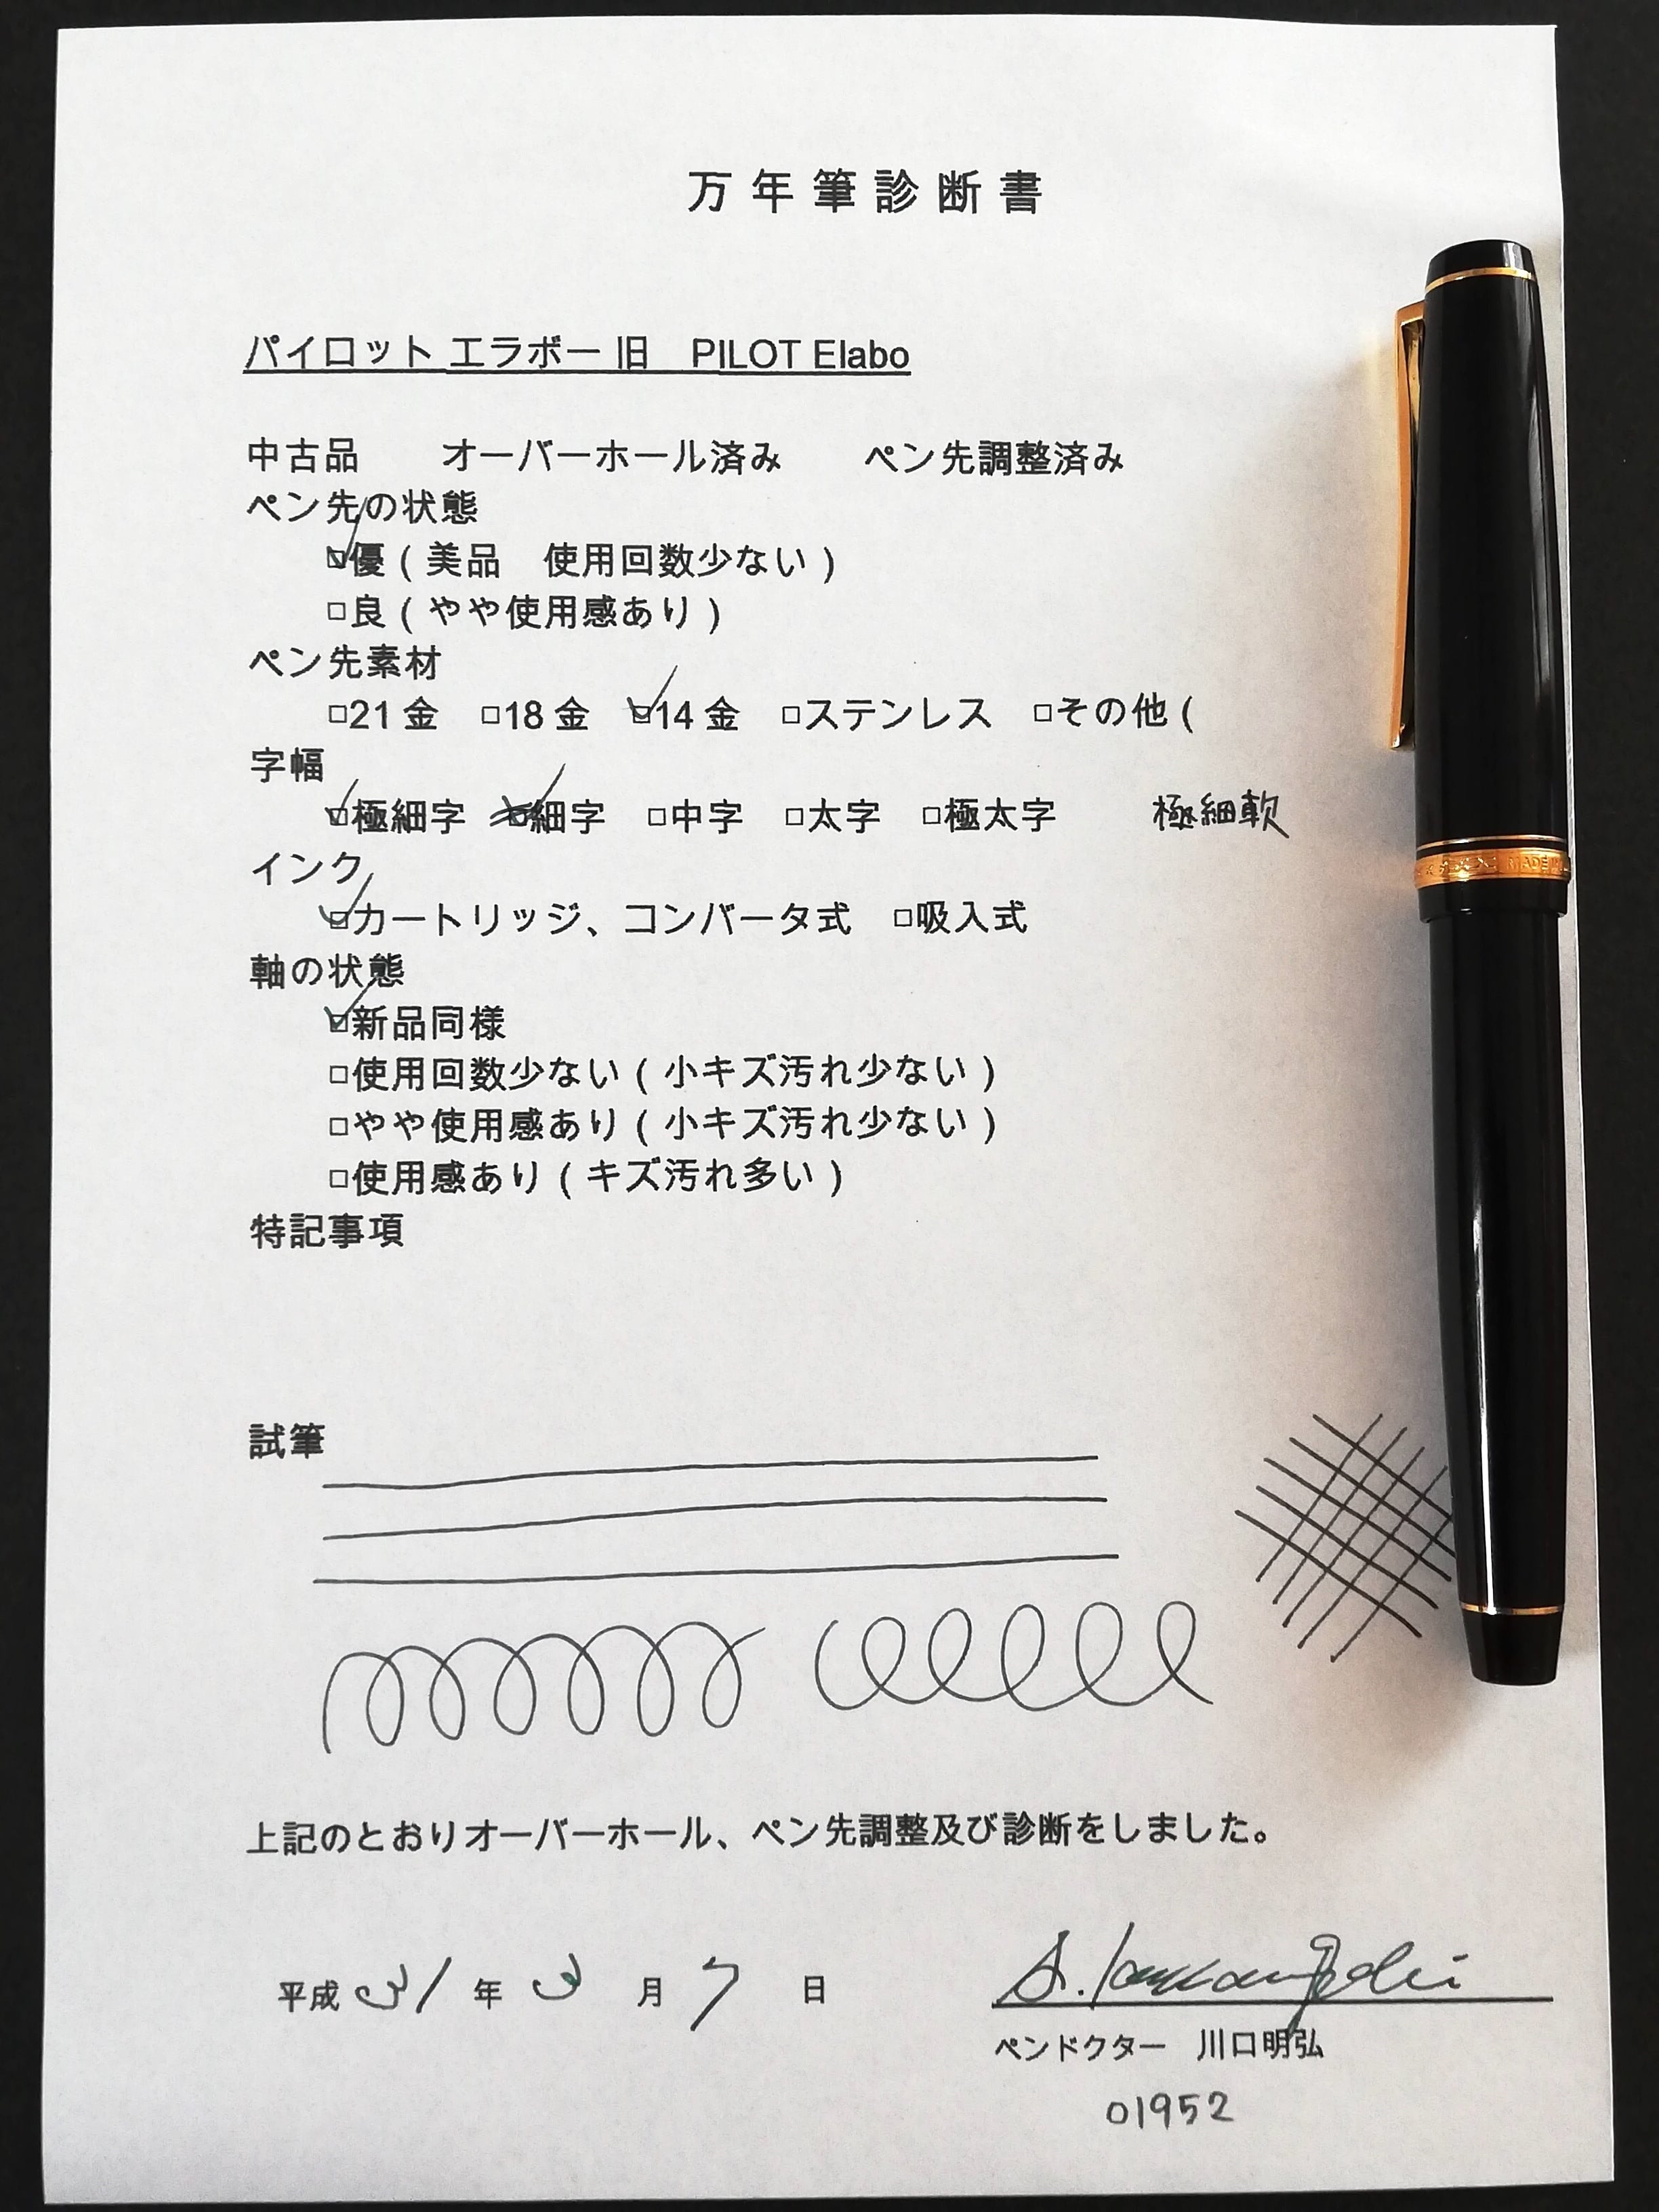 万年筆診断書
パイロット エラボー 旧　PILOT Elabo
中古品　　オーバーホール済み　　ペン先調整済み
ペン先の状態
□優（美品　使用回数少ない）
□良（やや使用感あり）
ペン先素材
□21 金　□18 金　□14 金　□ステンレス　□その他（
字幅
□極細字　□細字　□中字　□太字　□極太字　　極細軟
インク
□カートリッジ、コンバータ式　□吸入式
軸の状態
□新品同様
□使用回数少ない（小キズ汚れ少ない）
□やや使用感あり（小キズ汚れ少ない）
□使用感あり（キズ汚れ多い）
特記事項
試筆
上記のとおりオーバーホール、ペン先調整及び診断をしました。
平成 31 年 3 月 7 日
ペンドクター　川口明弘
01952
MADE IN